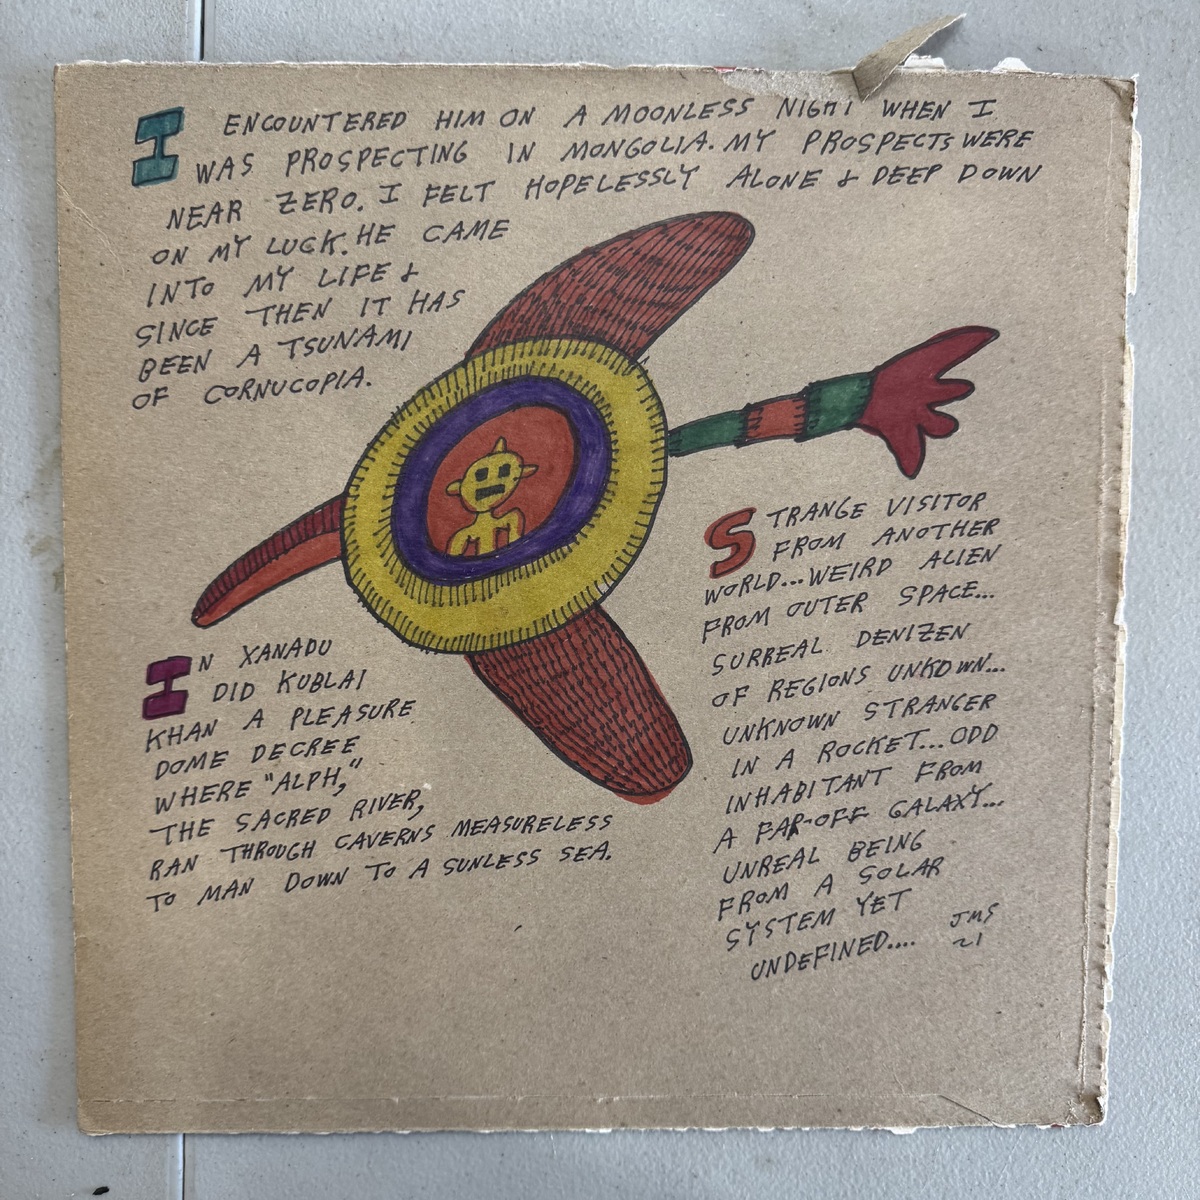 I ENCOUNTERED HIM ON A MOONLESS NIGHT WHEN I
WAS PROSPECTING IN MONGOLIA. MY PROSPECTS WERE
NEAR ZERO. I FELT HOPELESSLY ALONE & DEEP DOWN
ON MY LUCK. HE CAME
INTO MY LIFE &
SINCE THEN IT HAS
BEEN A TSUNAMI
OF CORNUCOPIA.
STRANGE VISITOR
FROM ANOTHER
WORLD...WEIRD ALIEN
FROM OUTER SPACE...
SURREAL DENIZEN
OF REGIONS UNKOWN...
UNKNOWN STRANGER
IN A ROCKET...ODD
INHABITANT FROM
A FAR-OFF GALAXY...
UNREAL BEING
FROM A SOLAR
SYSTEM YET
UNDEFINED....
JMS
21
IN XANADU
DID KUBLAI
KHAN A PLEASURE
DOME DECREE
WHERE "ALPH,"
THE SACRED RIVER,
RAN THROUGH CAVERNS MEASURELESS
TO MAN DOWN TO A SUNLESS SEA.